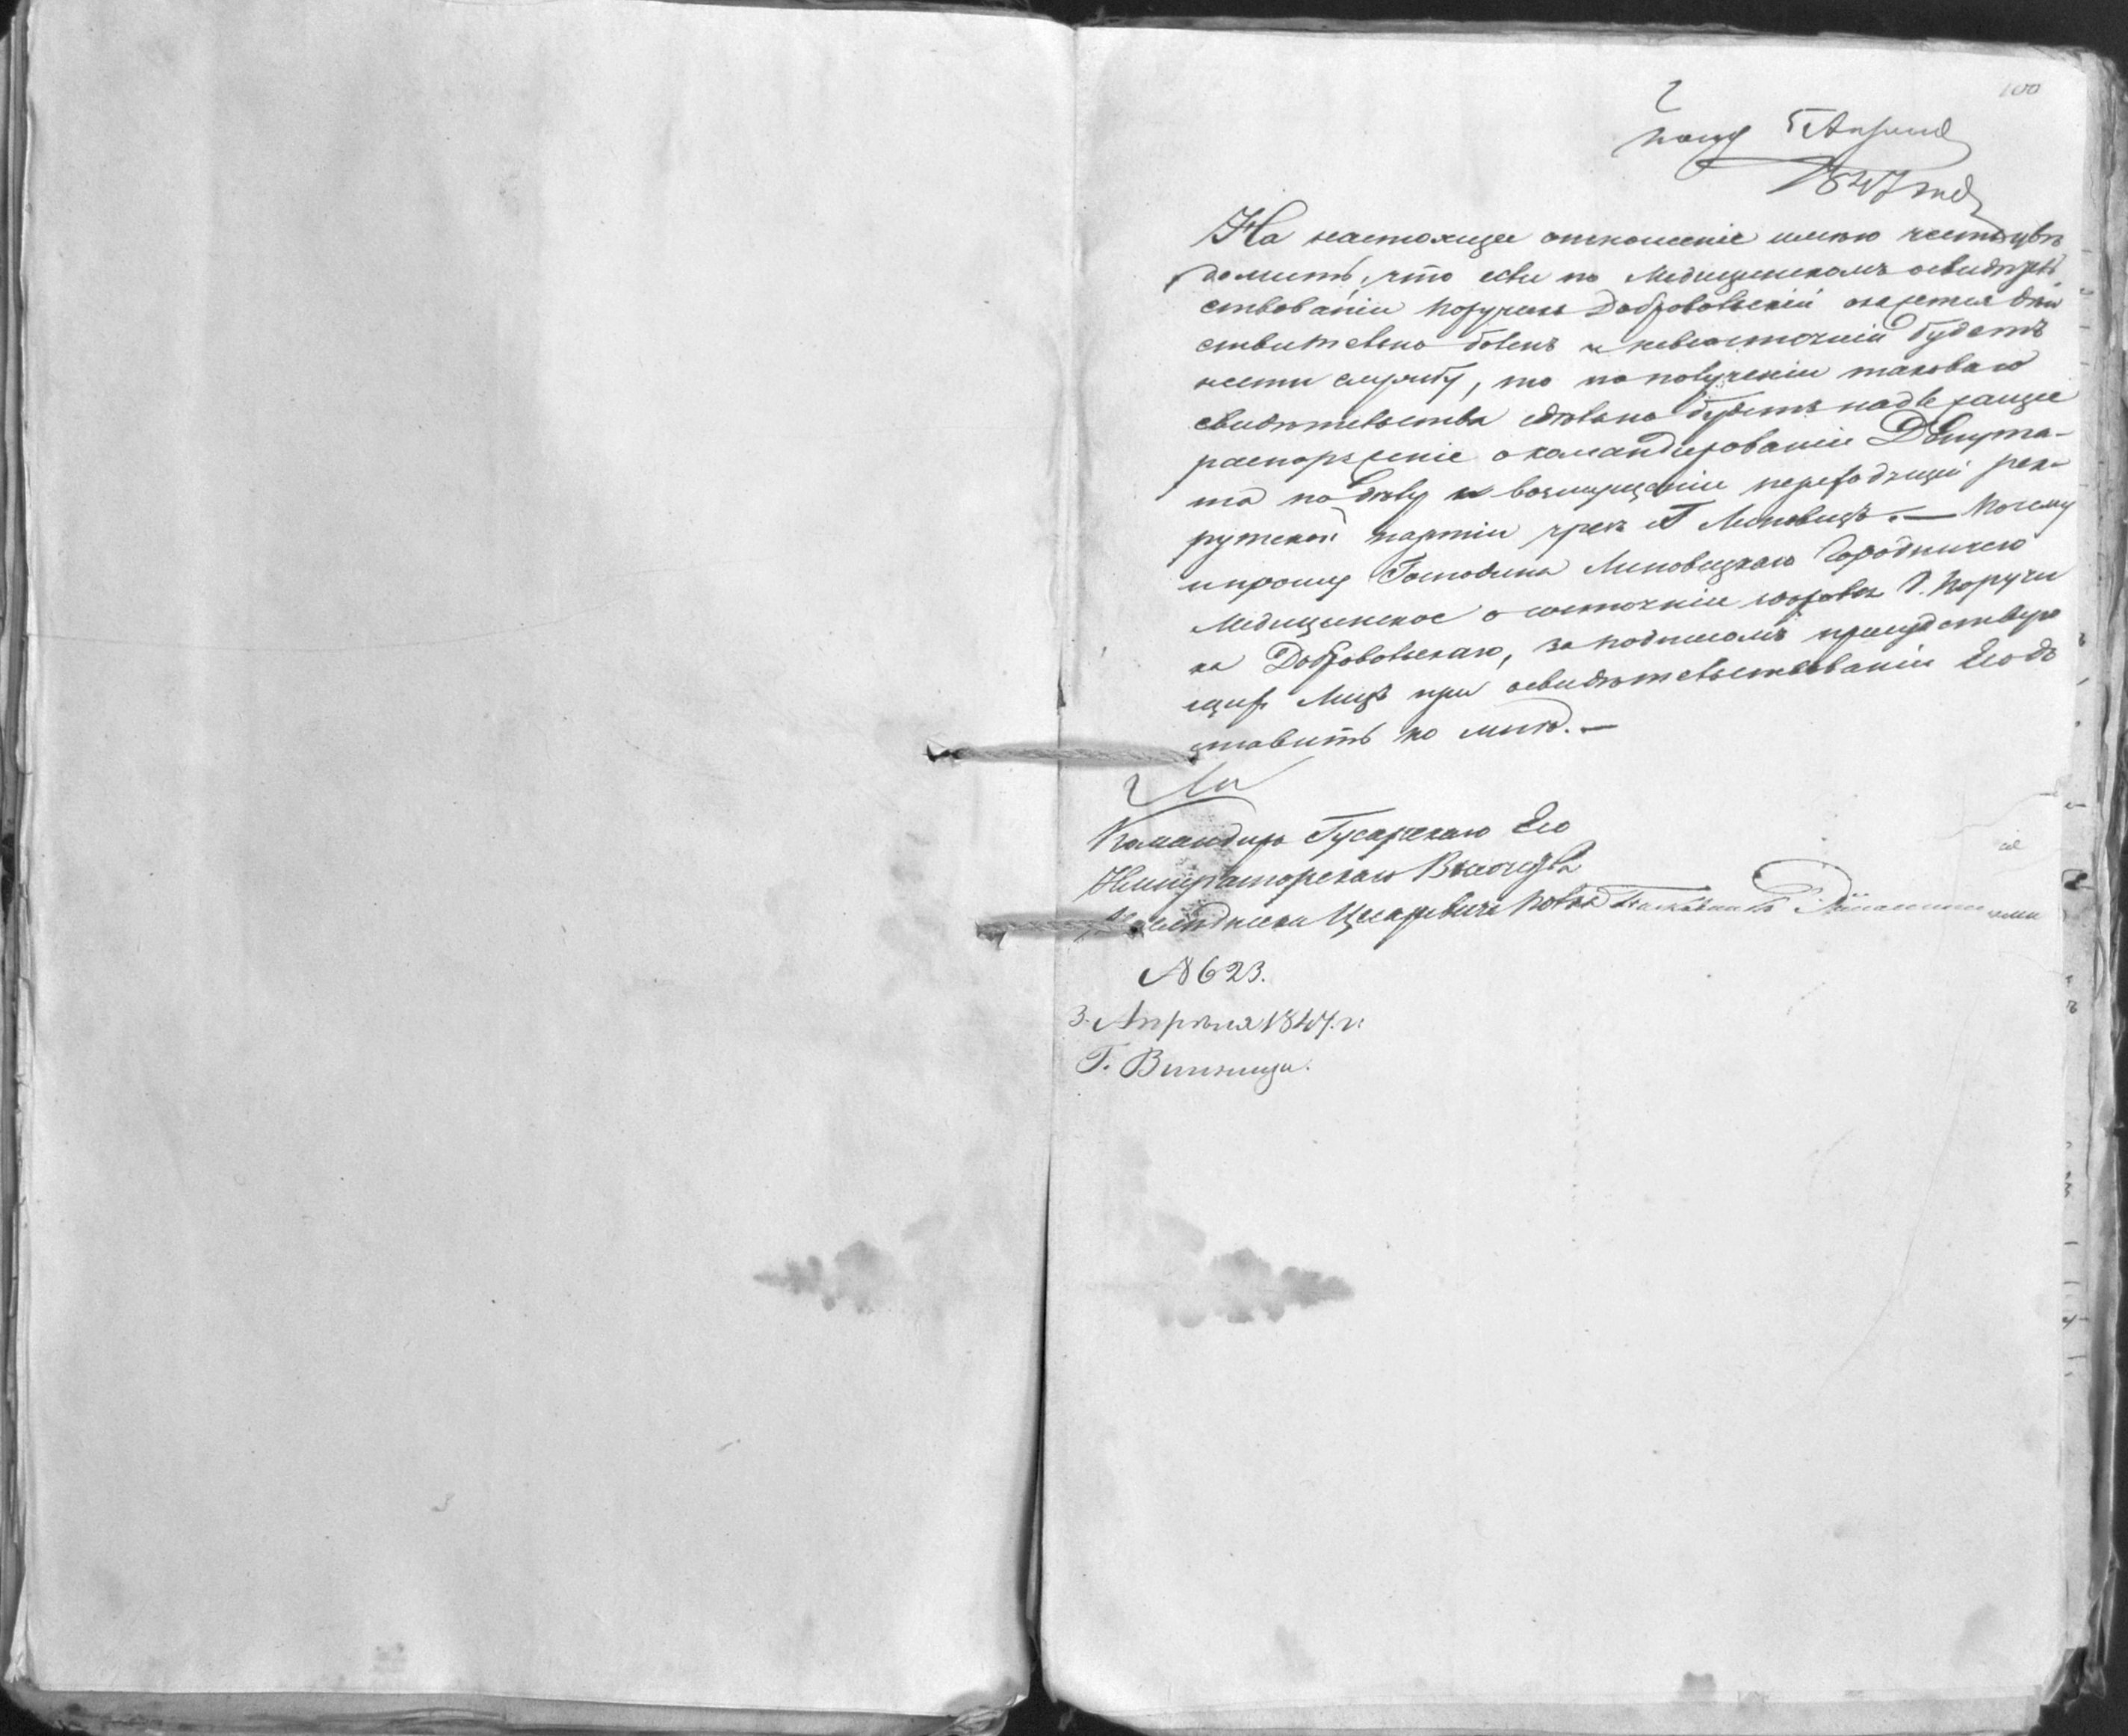 100
5 Апреля
1847 года
На настоящее отношеніе имею честь увѣ
домить, что если по Медицинскомъ освидѣтель
ствованіи Поручикъ Добровольскій окажется дѣй
ствительно боленъ и невсостояніи будетъ
нести службу, то по полученіи таковаго
свидѣтельства сдѣлано будетъ надлежащее
распоряженіе о командированіи Депута-
та по дѣлу о возмущеніи переходящей рек-
рутской партіи чрезъ г Липовецъ. — Почему
и прошу Господина Липовецкаго Городничего
Медицинское о состояніи здоровья Г. Поручи
ка Добровольскаго, за подписомъ присудствую
щихъ Лицъ при освидѣтельствованіи Его до
ставить ко мнѣ. —
Командиръ Гусарскаго Его
Императорскаго Высочества
Наслѣдника Цесаревича Полка
№ 623.
3. Апрѣля 1847. г.
Г. Винница.